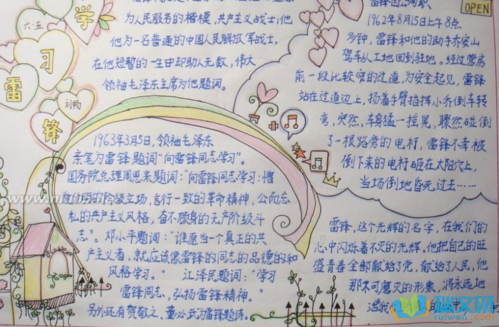 六五
学
习
雷
锋
刘楠
为人民服务的楷模,共产主义战士;他
他为一名普通的中国人民解放军战士,
在他短暂的一生中却助人无数,伟大
领袖毛泽东主席为他题词。
1963年3月5日,领袖毛泽东
亲笔为雷锋题词"向雷锋同志学习"。
国务院总理周恩来题词:"向雷锋同志学习:憎
爱分明的阶级立场,言行一致的革命精神,公而忘
私的共产主义风格,奋不顾身的无产阶级斗
志"。邓小平题词:"谁愿当一个真正的共
产主义者,就应该像雷锋同志的品德和
风格学习。" 江泽民题词:"学习
雷锋同志,弘扬雷锋精神。"
另外还有贺敬之、董必武等雷锋题诗。
OPEN
雷锋因公殉职
1962年8月15日上午8点
多钟,雷锋和他的助手乔安山
驾车从工地回到驻地。经过营房
前一段比较窄的过道,为安全起见,雷锋
站在过道边上,扬着手臂指挥小乔倒车转
弯,突然,车身猛一摇晃,骤然碰倒
了一根路旁的电杆,雷锋不幸被
倒下来的电杆砸在太阳穴上,
当场倒地昏死过去……
雷锋,这个光辉的名字,在我们的
心中闪烁着不灭的光辉,他把自己的旺
盛青春全部献给了党,献给了人民,他
那不可磨灭的形象,将永远地
语文网
ruiwen.com